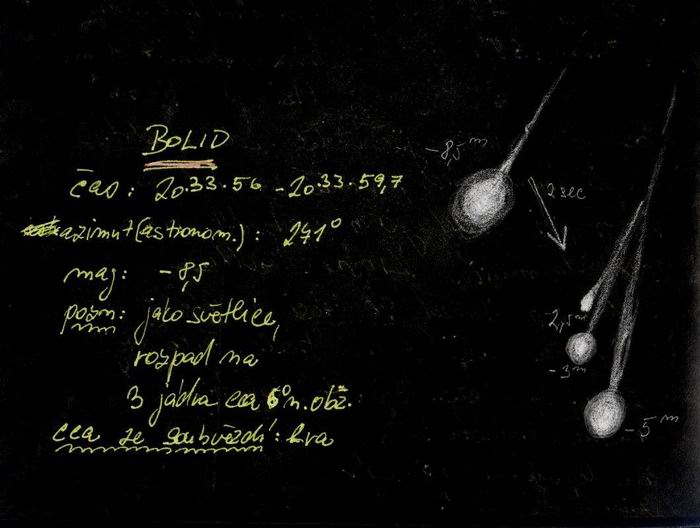 BOLID
čas: 20.33.56 - 20.33.59,7
azimut (astronom.): 271°
mag: -8,5
pozn: jako světlice,
rozpad na
3 jádra cca 6° n. obz.
cca ze souhvězdí: Lva
-8,5 m
2 sec
2,5 m
-3 m
-5 m